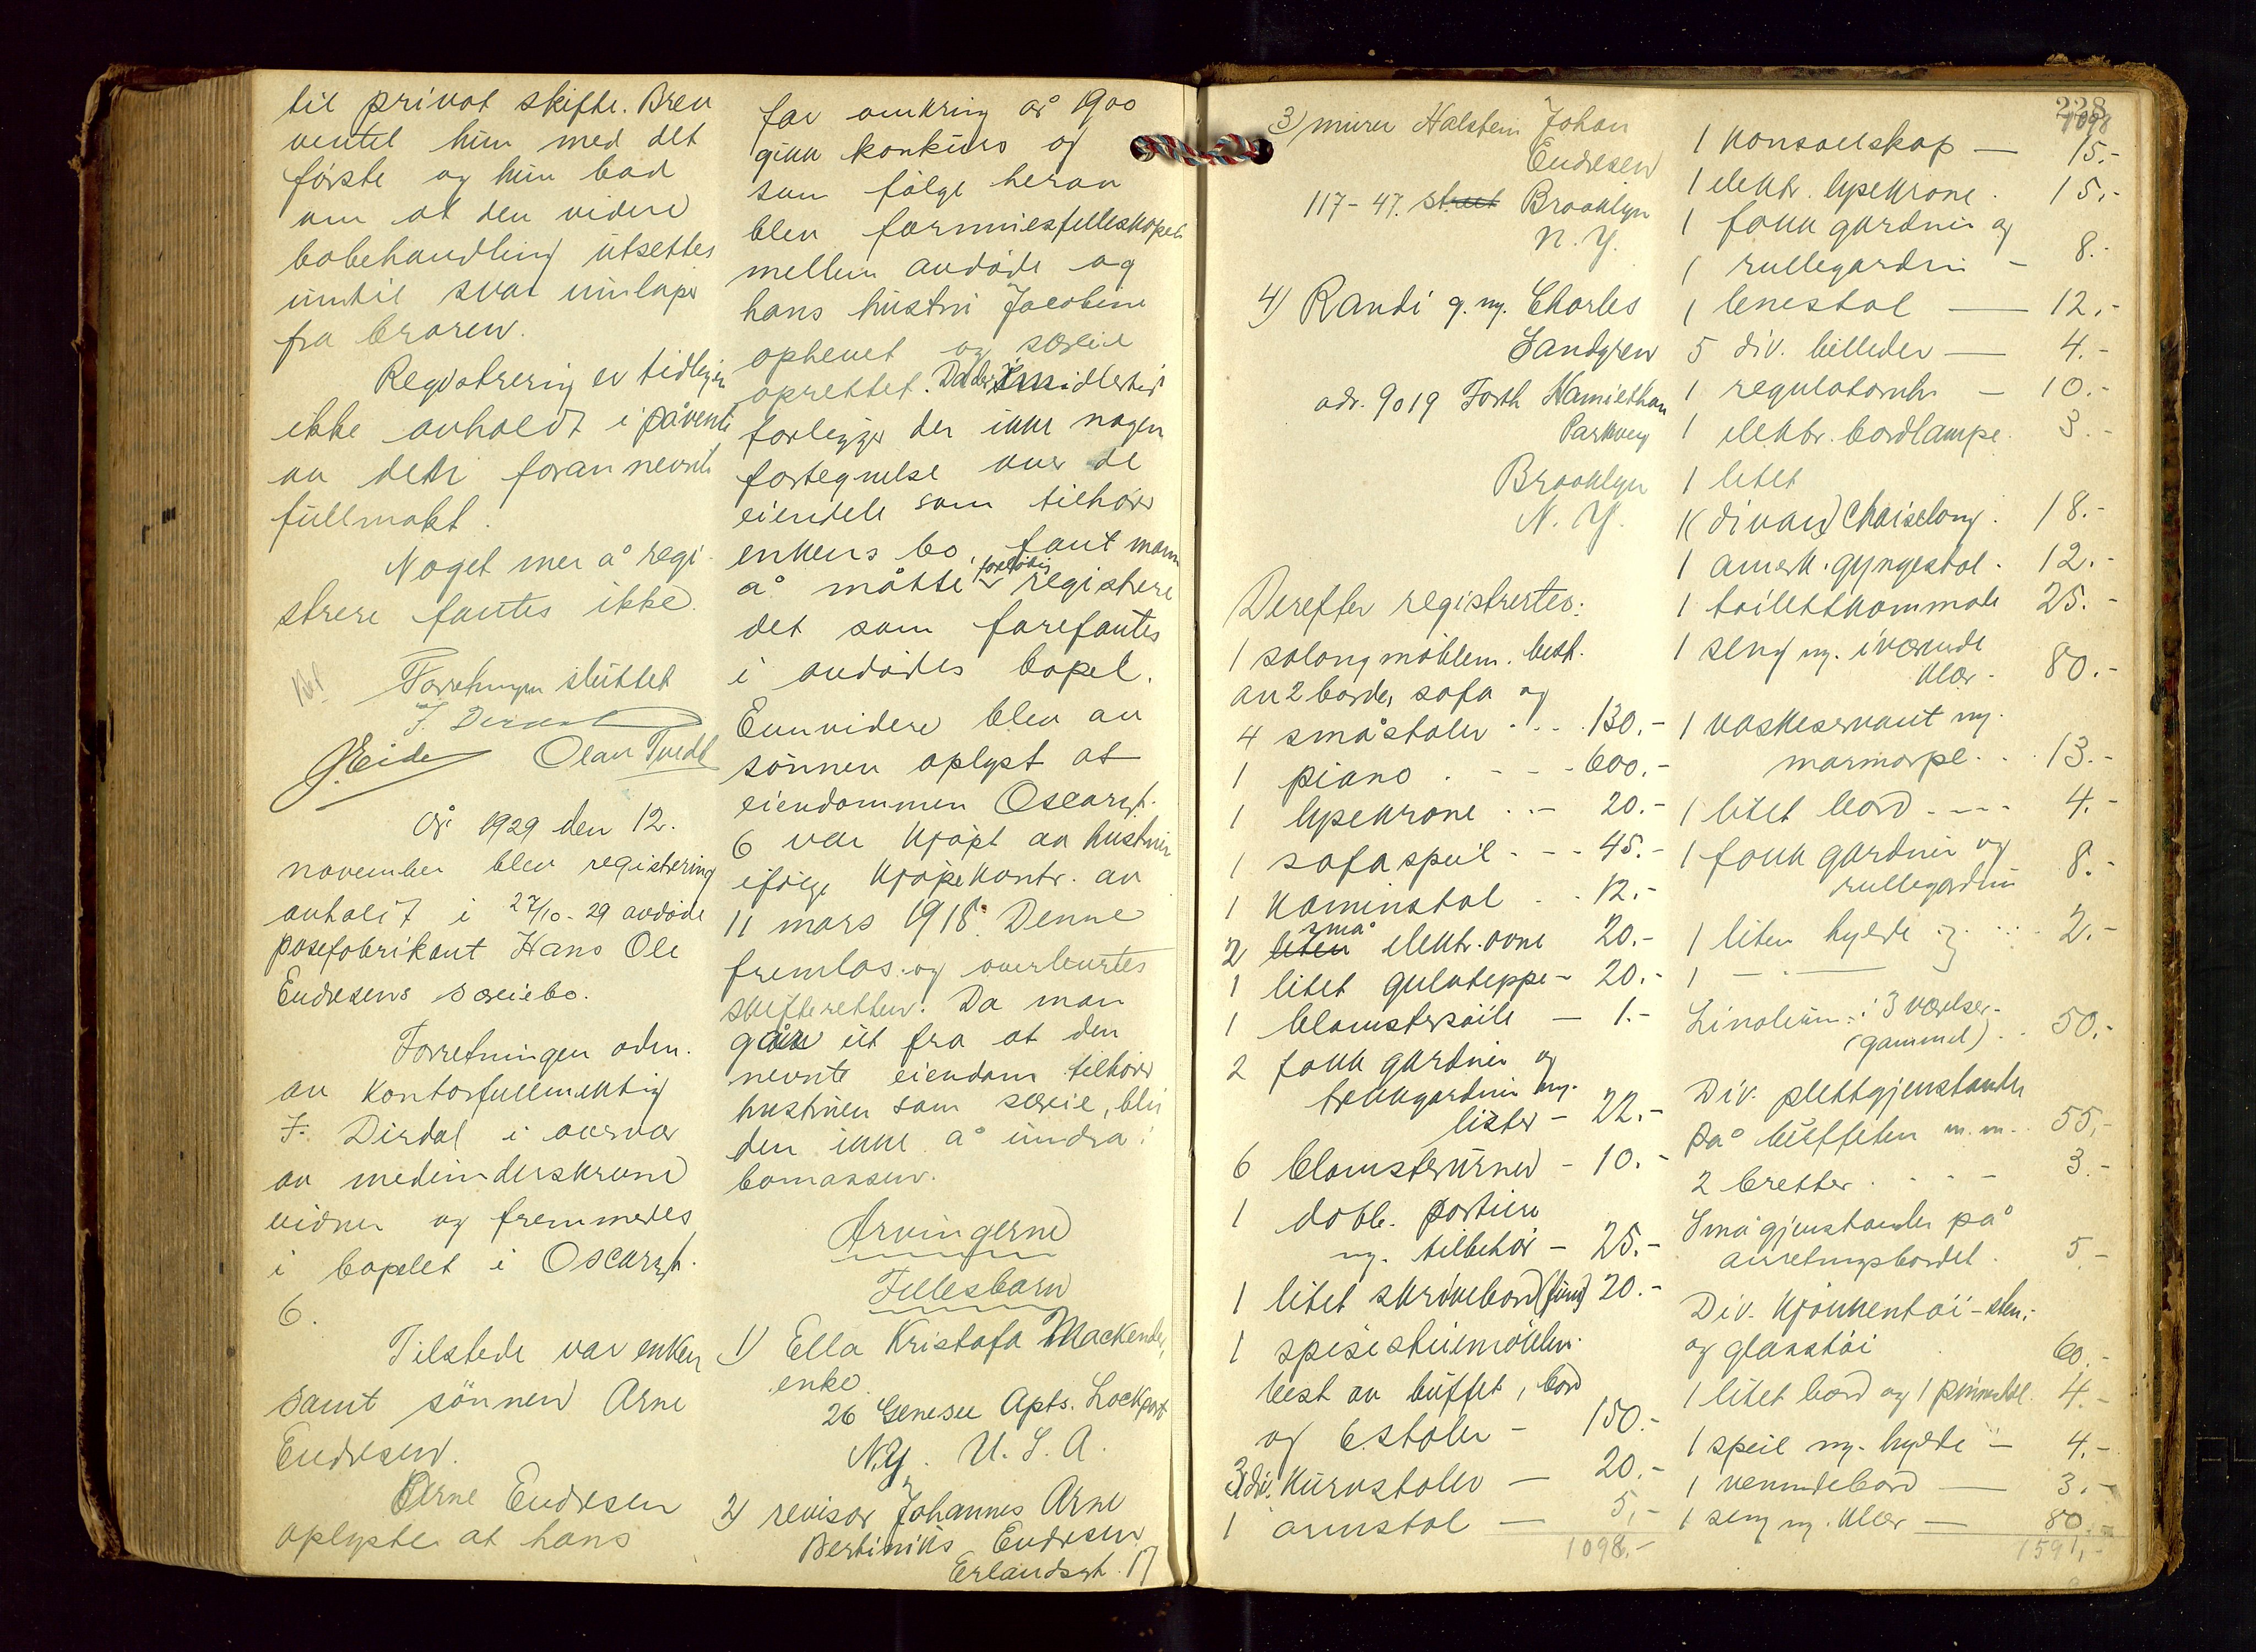 til privat skifte. Brev
ventet hun med det
første og hun bad
om at den videre
bobehandling utsettes
inntil svar innløper
fra broren.
Registrering er tidligere
ikke avholdt i påvente
av den foran nevnte
fullmakt.
Noget mer å regi-
strere fantes ikke.
Forretningen sluttet
J. Dirdal
J. Eide Olav Tvedt
År 1929 den 12.
november blev registrering
avholdt i 27/10-29 avdøde
posefabrikant Hans Ole
Endresens særeiebo.
Forretningen adm.
av kontorfullmektig
F. Dirdal i overvær
av medunderskrevne
vidner og fremmedes
i bopelet i Oscarsgt.
6.
Tilstede var enken
samt sønnen Arne
Endresen.
Arne Endresen
oplyste at hans
far omkring år 1900
gikk konkurs og
som følge herav
blev formuesfellesskapet
mellem avdøde og
hans hustru Jacobine
ophevet og særeie
oprettet. Da der imidlertid
forligger der ikke nogen
fortegnelse over de
eiendele som tilhører
enkens bo, fant man
å måtte foreløbig registrere
det som forefantes
i avdødes bopel.
Ennvidere blev av
sønnen oplyst at
eiendommen Oscarsgt.
6 var kjøpt av hustruen
ifølge kjøpekontr. av
11 mars 1918. Denne
fremlas og overleveres
skifteretten. Da man
går ut fra at den
nevnte eiendom tilhører
hustruen som særeie, blir
den ikke å inndra i
bomassen.
Arvingerne
Fellesbarn
1) Ella Kristofa Mackender,
enke.
26 Genesee Apts. Lockport
N.Y. U.S.A.
2) revisor Johannes Arne
Bertinius Endresen
Erlandsgt. 17
3) murer Halstein Johan
Endresen
117-47. street Brooklyn
N.Y.
4) Randi g.m. Charles
Sandgren
adr. 9019 Forth Hamilthan
Parkvey
Brooklyn
N.Y.
Derefter registrertes:
1 salongmøblem. best.
av 2 borde, sofa og
4 småstoler ... 130.-
1 piano . - - -600.-
1 lysekrone . . - 20.-
1 sofaspeil - - - 45.-
1 kaminstol . . 12.-
2 liten små elektr. ovne 20.-
1 litet gulvteppe - 20.-
1 blomstersøile — 1.-
2 fakk gardiner og
trekkgardiner m.
lister - 22.-
6 blomsterurner - 10.-
1 dobb. portiere
m. tilbehør - 25.-
1 litet skrivebord (furu) 20.-
1 spisestuemøblem.
best av buffet, bord
og 6 stoler - 150.-
3 div. kurvstoler — 20.-
1 armstol — 5,-
1098.-
228
1098
1 konsollskap — 15.-
1 elektr. lysekrone . 15,-
1 fakk gardiner og
1 rullegardin - 8.-
1 lenestol — 12.-
5 div. billeder — 4.-
1 regulatoruhr — 10.-
1 elektr. bordlampe. 3.-
1 litet
1 (divan) Chaiselong . 18.-
1 amerk. gyngestol . 12.-
1 toilettkommode 25.-
1 seng m. iværende
klær - 80.-
1 vaskeservant m.
marmorpl. . . 13.-
1 litet bord - - - 4.-
1 fakk gardiner og
rullegardin 8.-
1 liten hylde 2.-
1 — " —
Linoleum i 3 værelser -
(gammel) . . 50.-
Div. plettgjenstander
på buffeten m.m. . 55,-
2 bretter . . . - 3.-
Små gjenstander på
anretningsbordet . 5.-
Div. kjøkkentøi - sten-
og glasstøi 60.-
1 litet bord og 1 pinnestol. 4.-
1 speil m. hylde — 4.-
1 bord — 3.-
1 seng m. klær — 80.-
1591,-